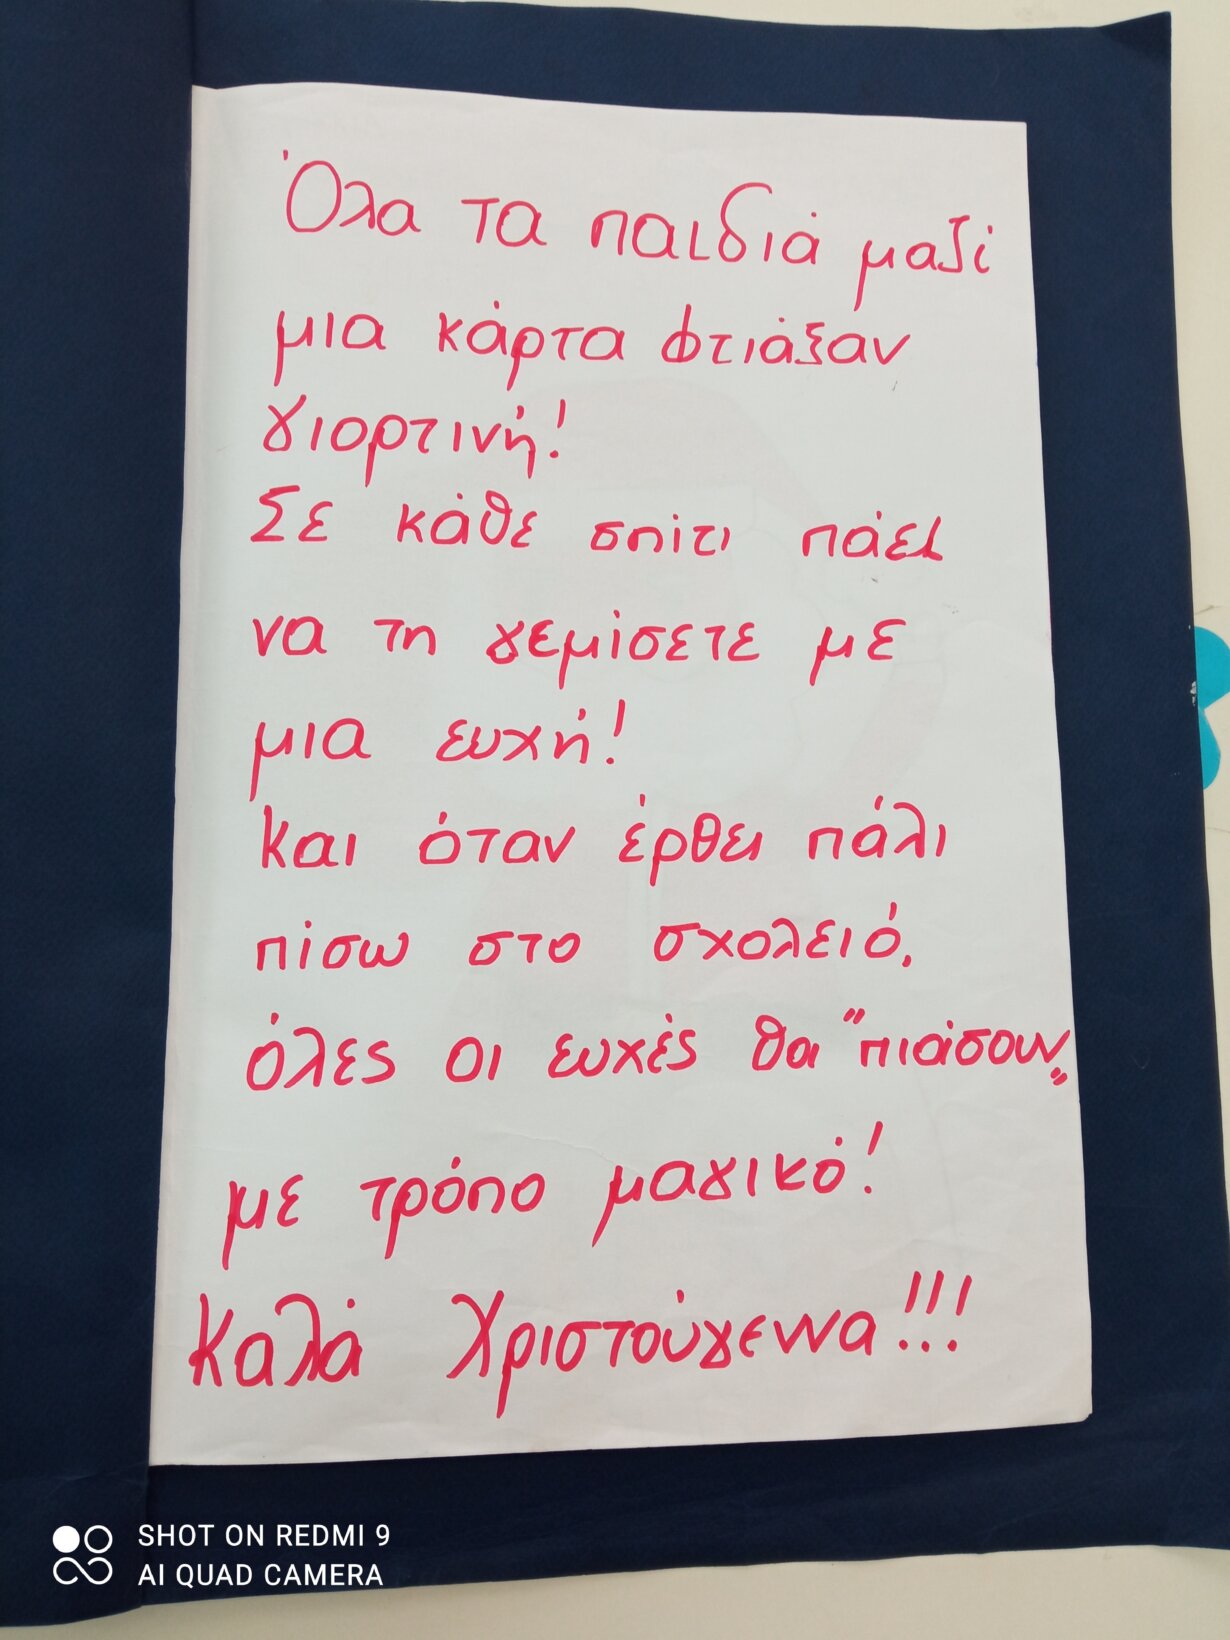 Όλα τα παιδιά μαζί
μια κάρτα φτιάξαν
γιορτινή!
Σε κάθε σπίτι πάει
να τη γεμίσετε με
μια ευχή!
Και όταν έρθει πάλι
πίσω στο σχολειό,
όλες οι ευχές θα "πιάσουν"
με τρόπο μαγικό!
Καλά Χριστούγεννα!!!
SHOT ON REDMI 9
AI QUAD CAMERA